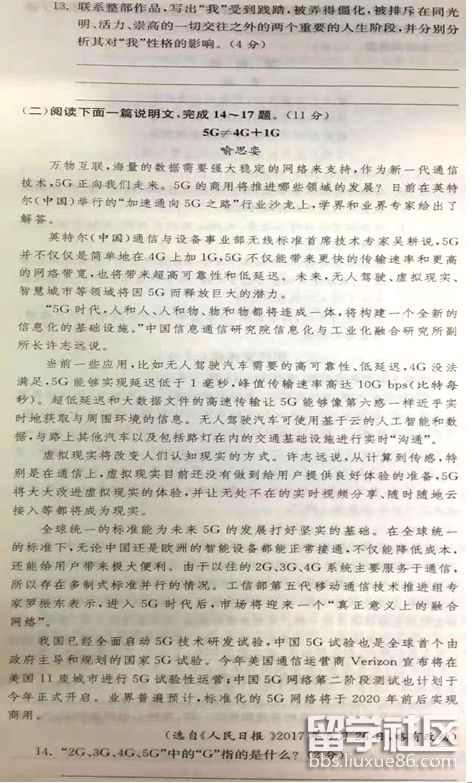 13. 联系整部作品,写出“我”受到践踏,被弄得僵化,被排斥在同光
明、活力、崇高的一切交往之外的两个重要的人生阶段,并分别分
析其对“我”性格的影响。(4分)
(二)阅读下面一篇说明文,完成14~17题。(11分)
5G≠4G+1G
喻思娈
万物互联,海量的数据需要强大稳定的网络来支持,作为新一代通信
技术,5G正向我们走来。5G的商用将推进哪些领域的发展?日前在英特
尔(中国)举行的“加速通向5G之路”行业沙龙上,学界和业界专家给出了
解答。
英特尔(中国)通信与设备事业部无线标准首席技术专家吴耕说,5G
并不仅仅是简单地在4G上加1G,5G不仅能带来更快的传输速率和更高
的网络带宽,也将带来超高可靠性和低延迟。未来,无人驾驶、虚拟现实、
智慧城市等领域将因5G而释放巨大的潜力。
“5G时代,人和人、人和物、物和物都将连成一体,将构建一个全新的
信息化的基础设施。”中国信息通信研究院信息化与工业化融合研究所副
所长许志远说。
当前一些应用,比如无人驾驶汽车需要的高可靠性、低延迟,4G没法
满足,5G能够实现延迟低于1毫秒,峰值传输速率高达10G bps(比特每
秒)。超低延迟和大数据文件的高速传输让5G能够像第六感一样近乎实
时地获取与周围环境的信息。无人驾驶汽车可使用基于云的人工智能和数
据,与路上其他汽车以及包括路灯在内的交通基础设施进行实时“沟通”。
虚拟现实将改变人们认知现实的方式。许志远说,从计算到传感,特
别是在通信上,虚拟现实目前还没有做到给用户提供良好体验的准备,5G
将大大改进虚拟现实的体验,并让无处不在的实时视频分享、随时随地云
接入等都将成为现实。
全球统一的标准能为未来5G的发展打好坚实的基础。在全球统一
的标准下,无论中国还是欧洲的智能设备都能正常接通,不仅能降低成本,
还能给用户带来极大便利。由于以往的2G、3G、4G系统主要服务于通信,
所以存在多制式标准并行的情况。工信部第五代移动通信技术推进组专
家罗振东表示,进入5G时代后,市场将迎来一个“真正意义上的融合
网络”。
我国已经全面启动5G技术研发试验,中国5G试验也是全球首个由
政府主导和规划的国家5G试验。今年美国通信运营商Verizon宣布将在
美国11座城市进行5G试验性运营;中国5G网络第二阶段测试也计划于
今年正式开启。业界普遍预计,标准化的5G网络将于2020年前后实现
商用。
(选自《人民日报》2017年
14. “2G、3G、4G、5G”中的“G”指的是什么?(2分)
留学社区
bbs.liuxue86.com